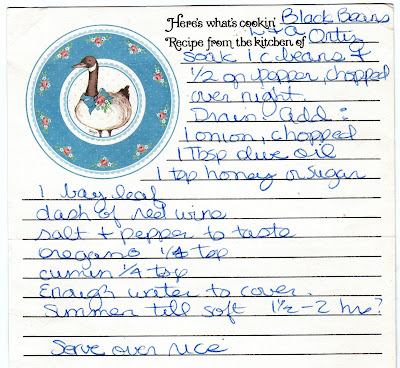 Here's what's cookin' Black Beans
Recipe from the kitchen of Ortiz
soak 1 c beans +
1/2 gn pepper, chopped
over night.
Drain add:
1 onion, chopped
1 Tbsp olive oil
1 tsp honey or sugar
1 bay leaf
dash of red wine
salt + pepper to taste
oregano 1/4 tsp
cumin 1/4 tsp
Enough water to cover.
Simmer till soft 1 1/2 - 2 hrs?
Serve over rice